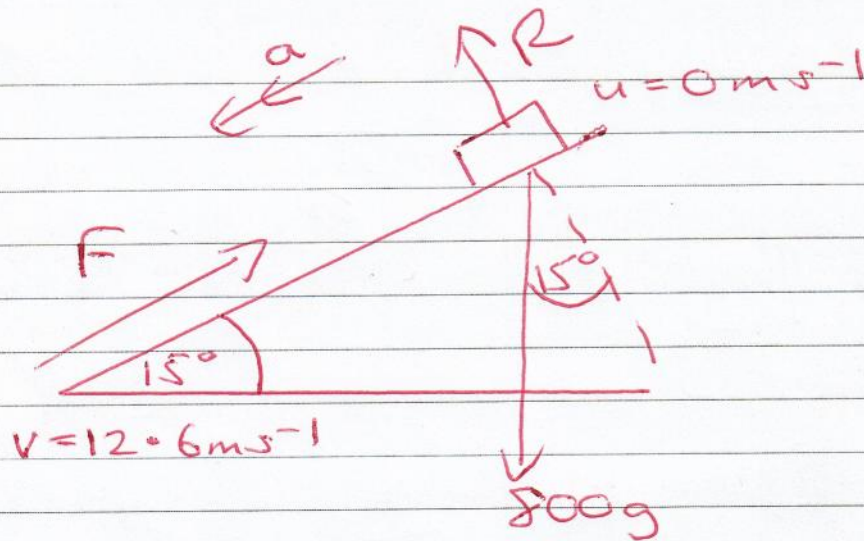 a
R
u = 0 ms⁻¹
F
15°
15°
v = 12·6 ms⁻¹
800g